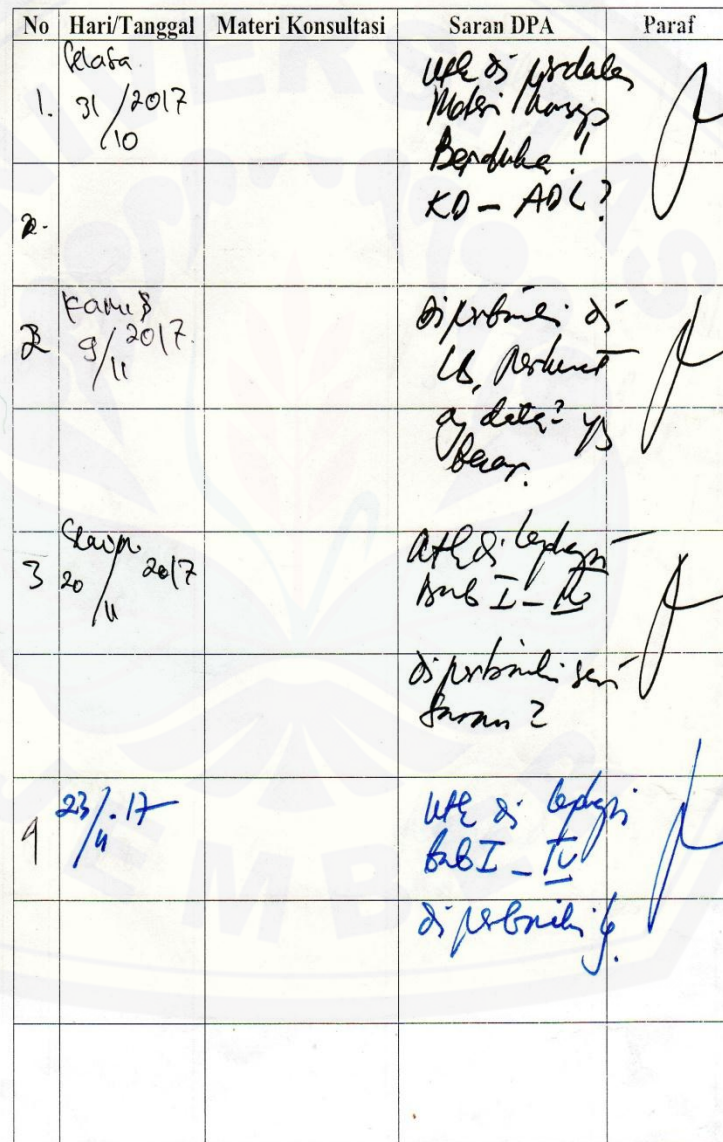 No Hari/Tanggal Materi Konsultasi Saran DPA Paraf
1. Selasa. 31/10 2017
Utk di perdalam
Materi konsep
Berduka!
KD - ADL?
2.
2 Kamis 9/11 2017.
Diperbaiki di
LB,
data2 yg
benar.
3 Senin 20/11 2017
Utk di lengkapi
Bab I - IV
diperbaiki
saran2
4 23/11.17
Utk di lengkapi
Bab I - IV
di perbaiki
UNIVERSITAS
JEMBER